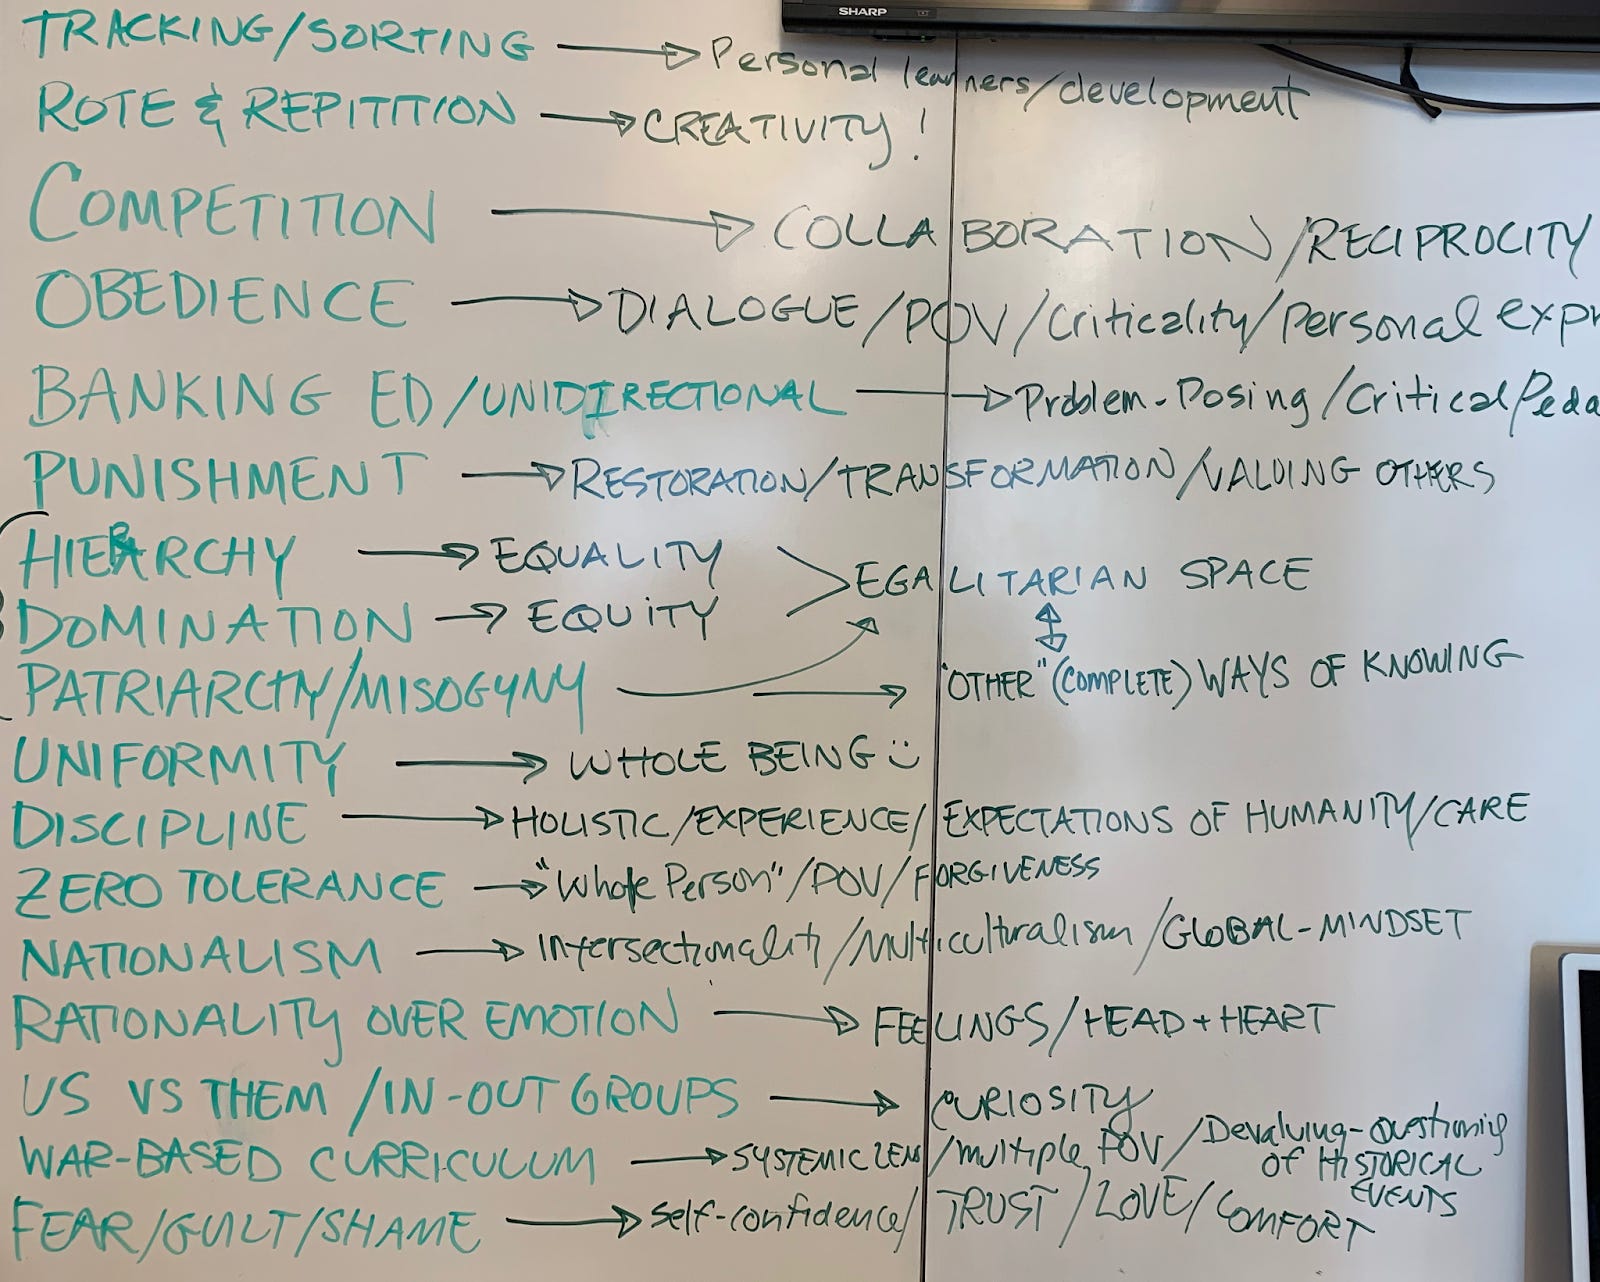 SHARP
TRACKING/SORTING → Personal learners/development
ROTE & REPITITION → CREATIVITY!
COMPETITION → COLLABORATION/RECIPROCITY
OBEDIENCE → DIALOGUE/POV/Criticality/Personal expr
BANKING ED/UNIDIRECTIONAL → Problem-Posing/Critical/Peda
PUNISHMENT → RESTORATION/TRANSFORMATION/VALUING OTHERS
HIERARCHY → EQUALITY
EGALITARIAN SPACE
DOMINATION → EQUITY
PATRIARCHY/MISOGYNY → "OTHER" (COMPLETE) WAYS OF KNOWING
UNIFORMITY → WHOLE BEING
DISCIPLINE → HOLISTIC/EXPERIENCE/EXPECTATIONS OF HUMANITY/CARE
ZERO TOLERANCE → "Whole Person"/POV/FORGIVENESS
NATIONALISM → Intersectionality/Multiculturalism/GLOBAL-MINDSET
RATIONALITY OVER EMOTION → FEELINGS/HEAD + HEART
US VS THEM/IN-OUT GROUPS → CURIOSITY
WAR-BASED CURRICULUM → SYSTEMIC LENS/multiple POV/Devaluing-Questioning
OF HISTORICAL
EVENTS
FEAR/GUILT/SHAME → Self-confidence/TRUST/LOVE/COMFORT